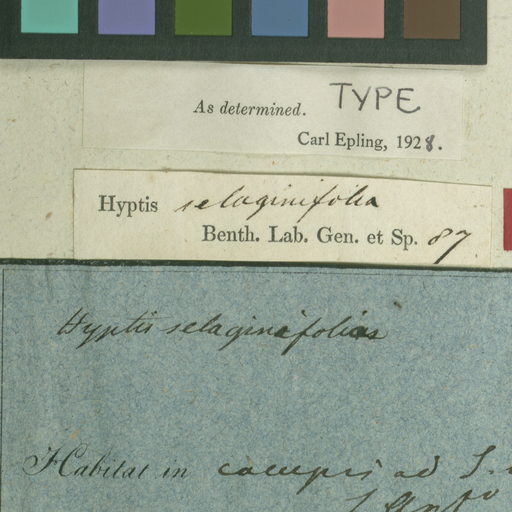 As determined. TYPE
Carl Epling, 1928.
Hyptis selaginifolia
Benth. Lab. Gen. et Sp. 87.
Hyptis selaginifolia
Habitat in campis ad S.